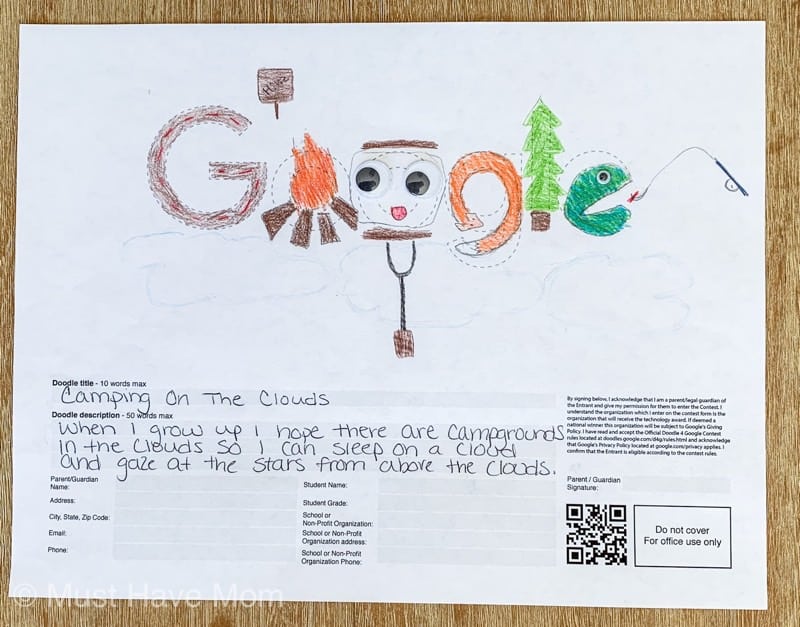 Google
Doodle title - 10 words max
Camping On The Clouds
Doodle description - 50 words max
When I grow up I hope there are campgrounds
in the clouds so I can sleep on a cloud
and gaze at the stars from above the clouds.
By signing below, I acknowledge that I am a parent/legal guardian of
the Entrant and give my permission for them to enter the Contest. I
understand the organization which I enter on the contest form is the
organization that will receive the technology award. If deemed a
national winner this organization will be subject to Google's Giving
Policy. I have read and accept the Official Doodle 4 Google Contest
rules located at doodles.google.com/d4g/rules.html and acknowledge
that Google's Privacy Policy located at google.com/privacy applies. I
confirm that the Entrant is eligible according to the contest rules.
Parent/Guardian
Name:
Address:
City, State, Zip Code:
Email:
Phone:
Student Name:
Student Grade:
School or
Non-Profit Organization:
School or Non-Profit
Organization address:
School or Non-Profit
Organization Phone:
Parent / Guardian
Signature:
Do not cover
For office use only
© Must Have Mom